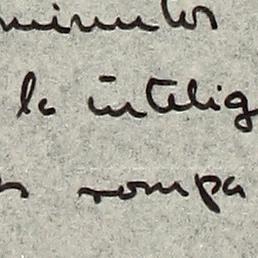 minutos
la intelig
rompa